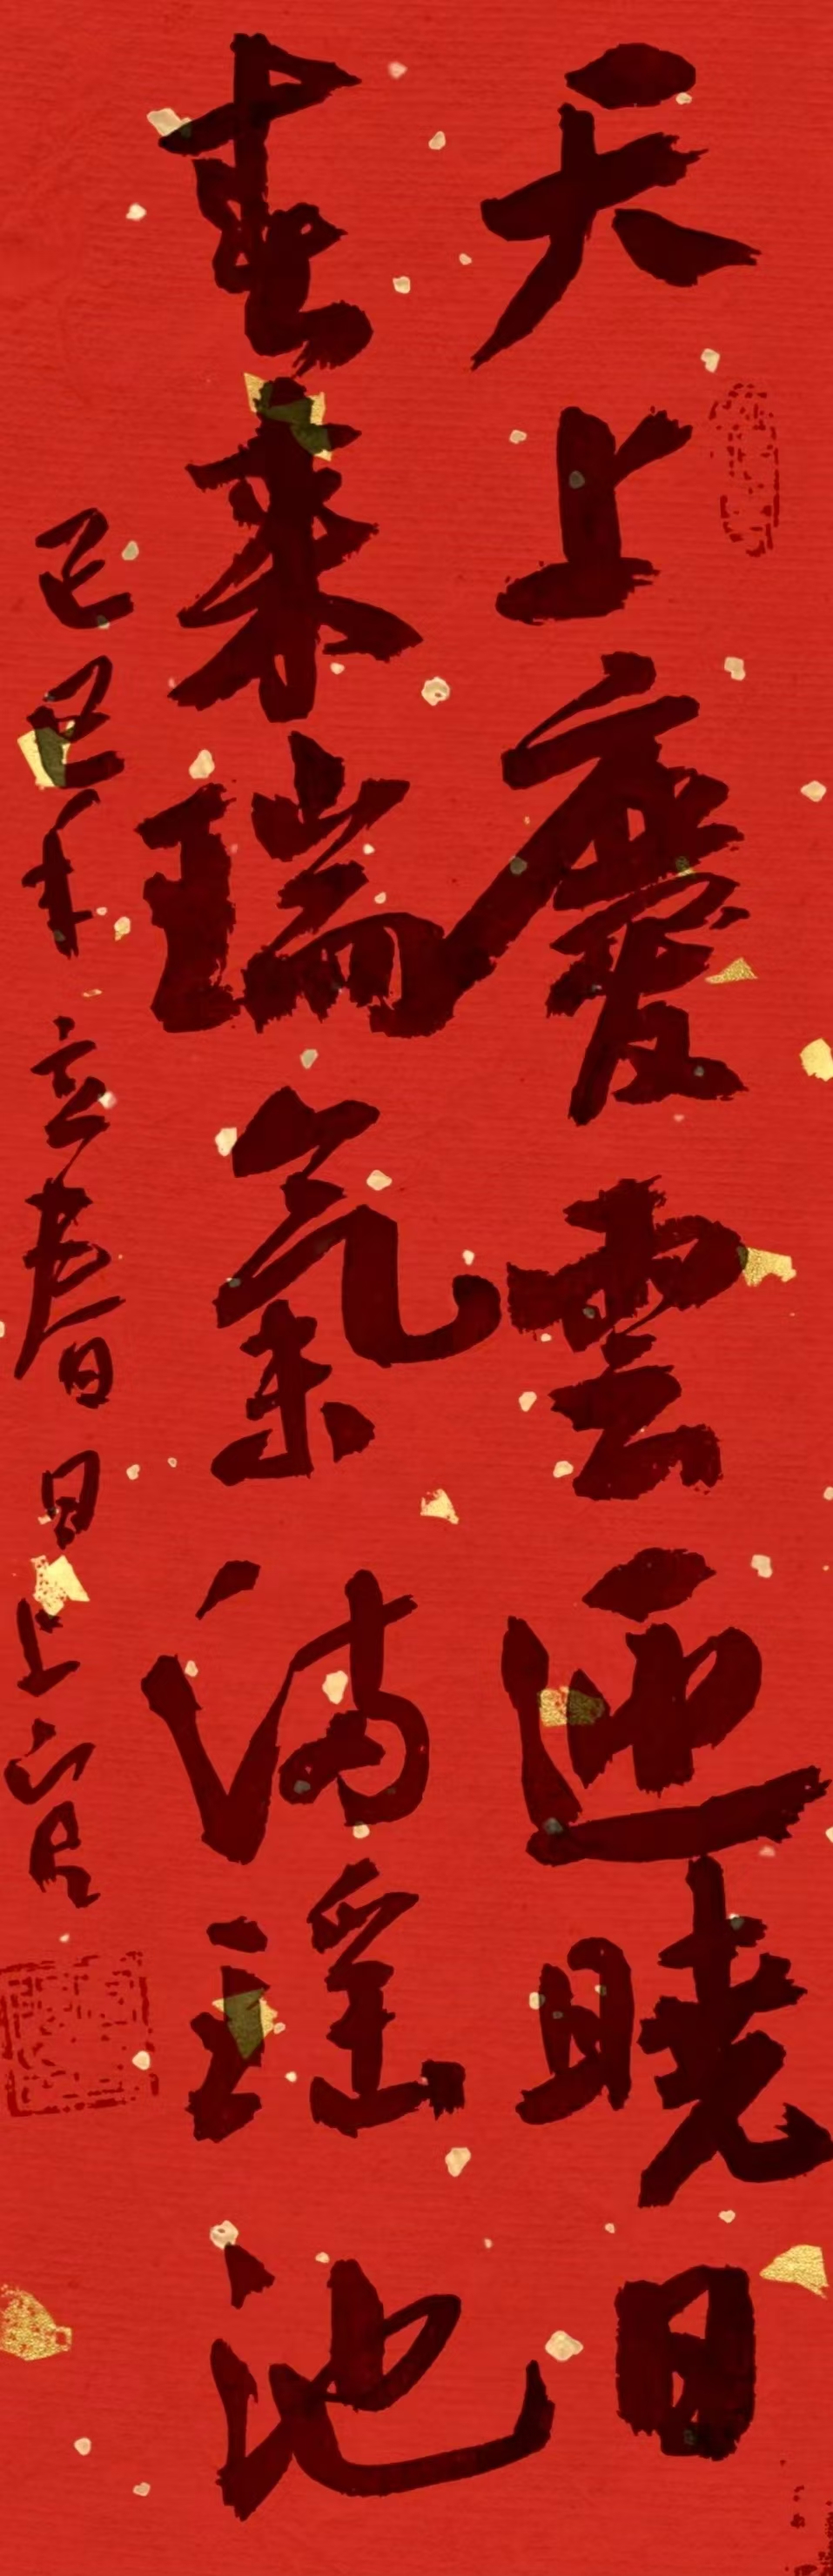 天上慶雲迎曉日
春来瑞氣滿瑤池
乙巳年立春日上官